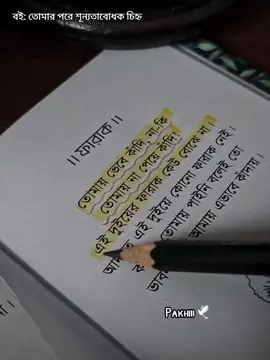 বই: তোমার পরে শূন্যতাবোধক চিহ্ন
॥ ফারাক ॥
তোমায় ভেবে কাঁদি, না কি
তোমায় না পেয়ে কাঁদি!
এই দুইয়ের ফারাক কেউ বোঝে না।
এই দুইয়ে কোনো ফারাক নেই।
তোমায় পাইনি বলেই তো
আমায় এভাবে কাঁদায়।
PAKHIII